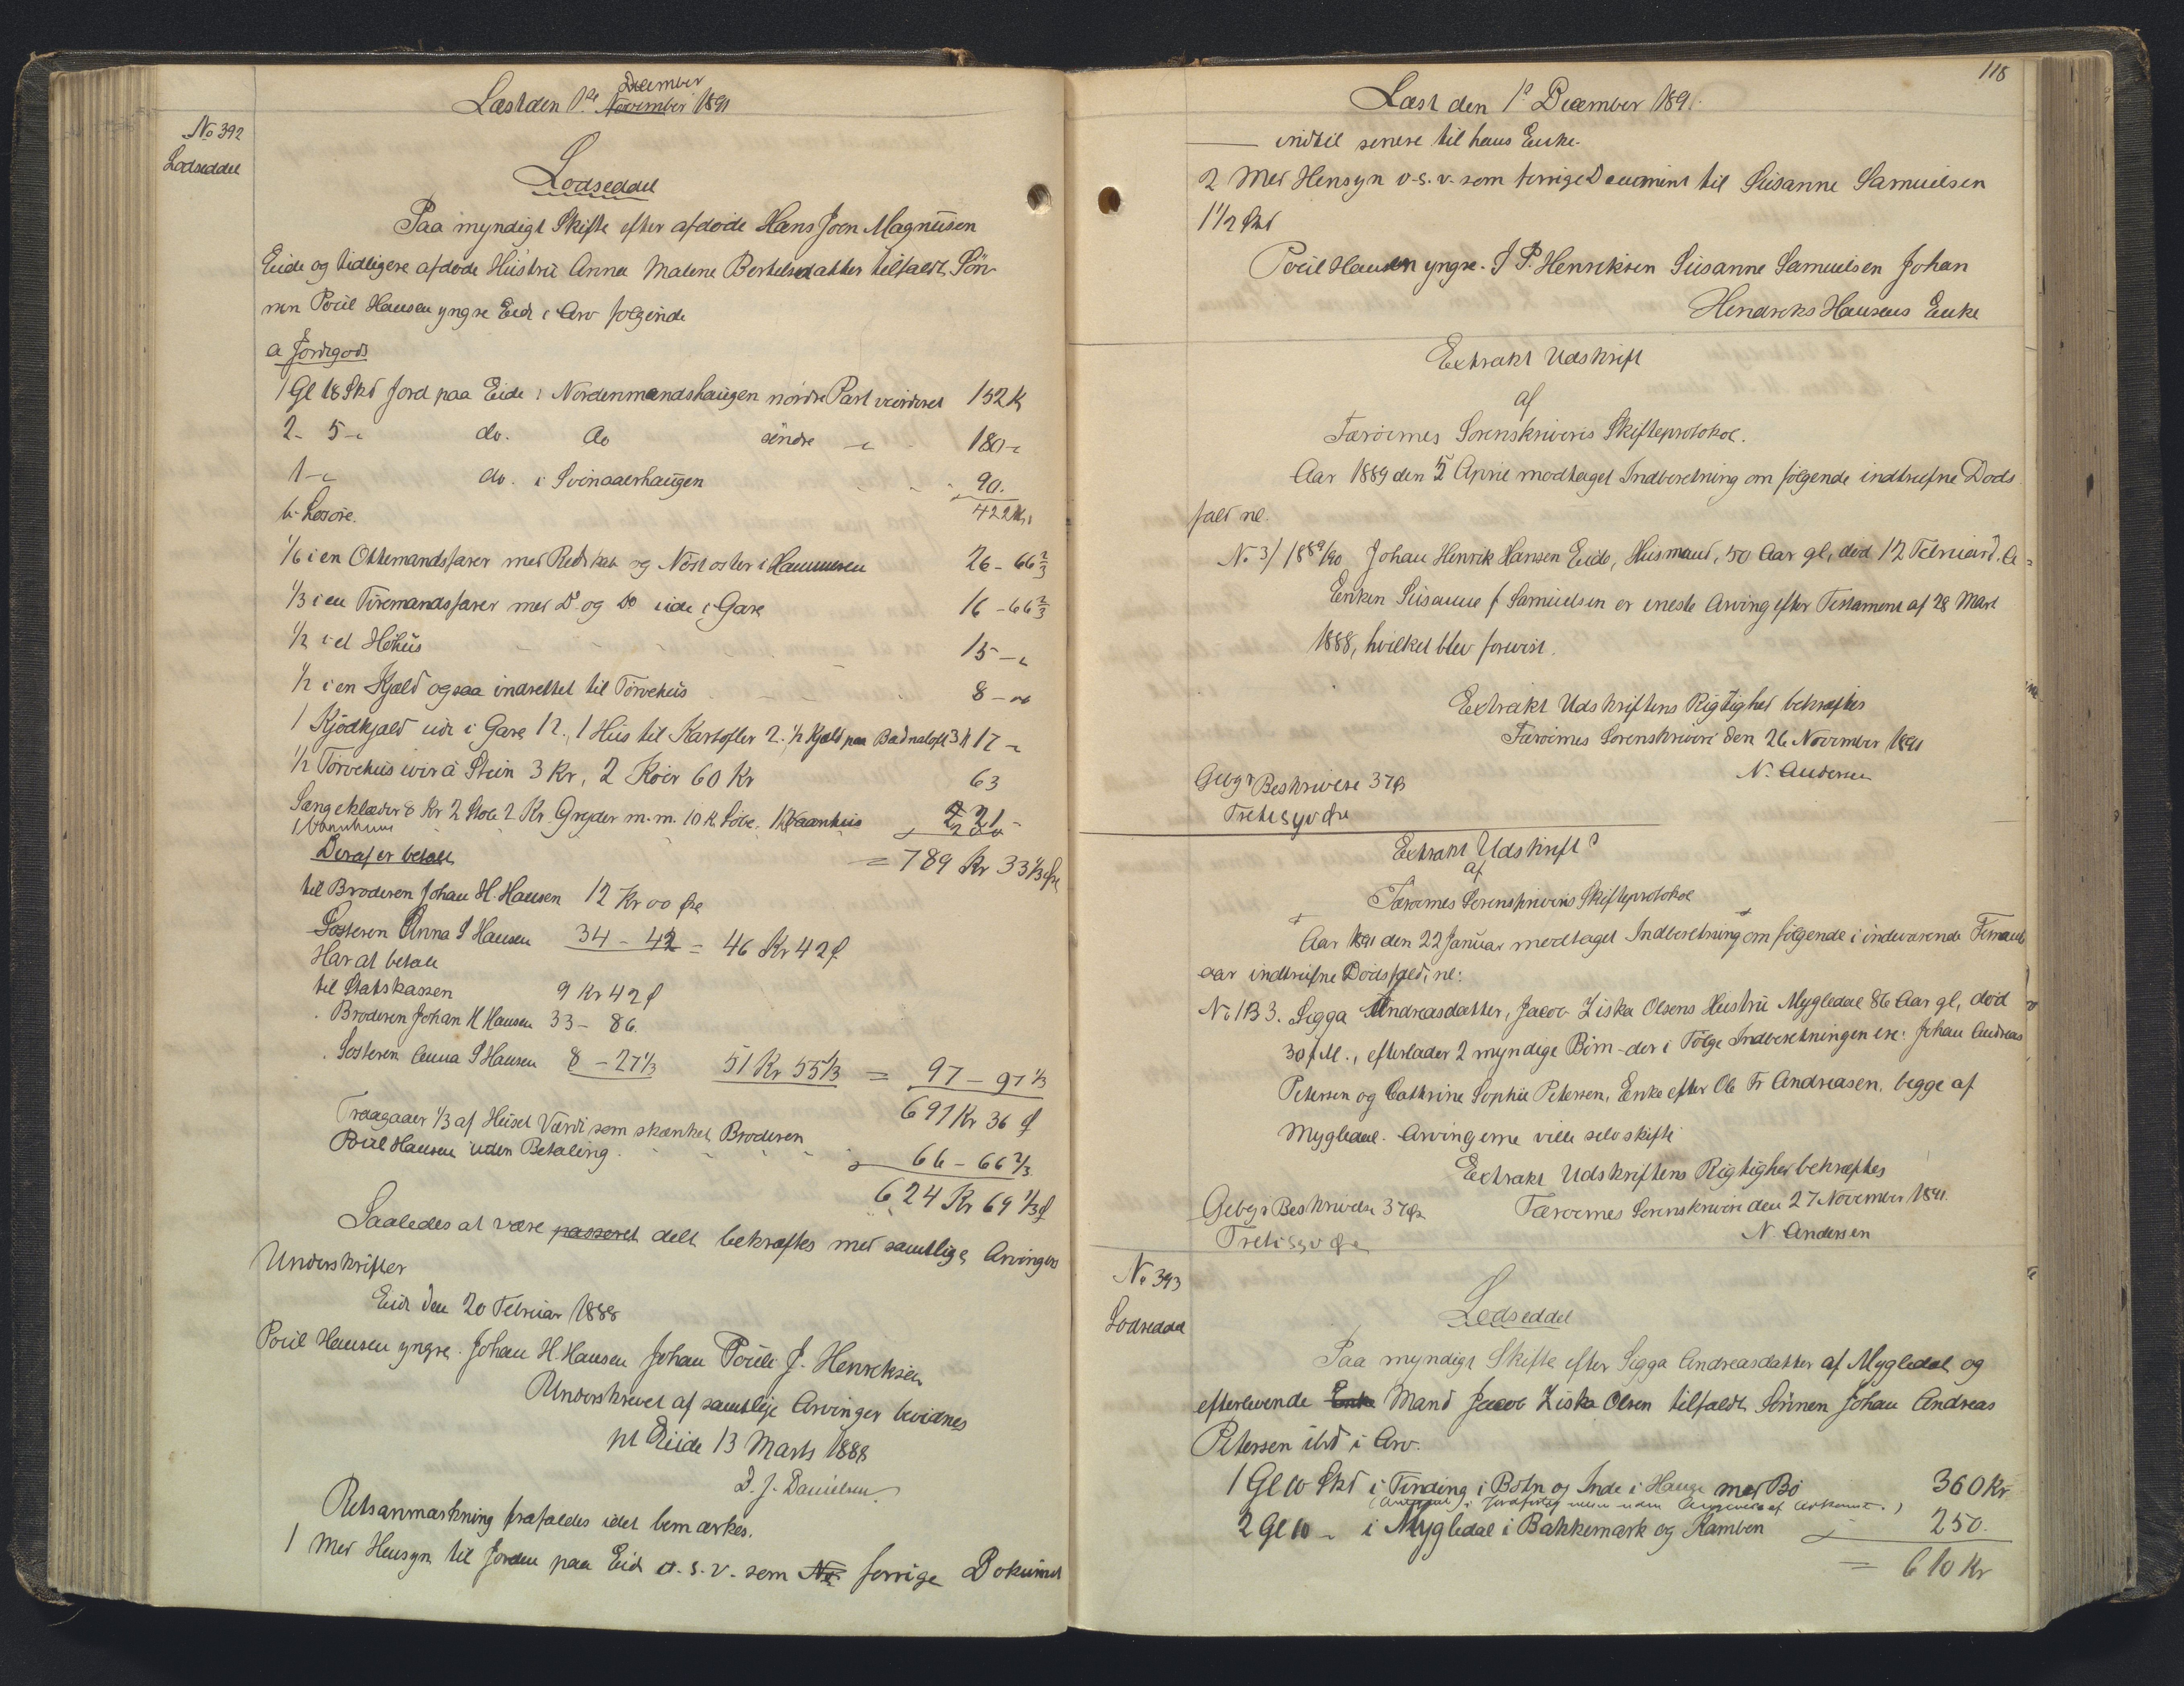 Læst den 1ste November 1891
December
No 392
Lodseddel
Lodseddel
Paa myndigt Skifte efter afdøde Hans Joen Magnussen
Eide og tidligere afdøde Hustru Anna Malene Bertelsdatter tilfaldt Søn-
nen Poul Hansen yngre Eide i Arv følgende
a Jordegods
1 Gl 18 Skd Jord paa Eide i Nordenmandshaugen nordre Part vurderet 152 K
2 - 5 - " do. do søndre - " 180 - "
1 - " do. i Svinaaerhaugen 90.
422 Kr
b. Løsøre.
1/6 i en Ottemandsfarer med Redskab og Nøst oster i Hammeren 26 - 66 2/3
1/3 i en Firemandsfarer med Do og Do ude i Gare 16 - 66 2/3
1/2 i et Høhus 15 - "
1/2 i en Kjæld ogsaa indrettet til Tørvehus 8 - "
1 Kjødkjæld ude i Gare 12., 1 Hus til Kartofler 2. 1/2 Kjæld paa Bødnaloft 3 K 17 - "
1/2 Tørvehus ivir á Stein 3 Kr, 2 Køer 60 Kr 63
Sængeklæder 8 Kr 2 Stole 2 Kr. Gryder m.m. 10 K
21 -
200
= 789 Kr 33 1/3 Øre
Deraf er betalt
til Broderen Johan H. Hansen 12 Kr 00 Øre
Søsteren Anna S Hansen 34 - 42 = 46 Kr 42 Ø
Har at betale
til Statskassen 9 Kr 42 Ø
. Broderen Johan H Hansen 33 - 86.
. Søsteren Anna S Hansen 8 - 27 1/3 51 Kr 55 1/3 = 97 - 97 1/3
691 Kr 36 Ø
Fragaaer 1/3 af Huset Værdi som skænket Broderen
Poul Hansen uden Betaling. 66 - 66 2/3
624 Kr 69 1/3 Ø
Saaledes at være passeret delt bekræftes med samtlige Arvinger
Underskrifter
Eide den 20 Februar 1888
Poul Hansen yngre. Johan H. Hansen Johan Poul J. Henriksen
Underskrevet af samtlige Arvinger bevidnes
pt Eide 13 Marts 1888
D. J. Danielsen
Retsanmærkning frafaldes idet bemærkes.
1 Med Hensyn til Jorden paa Eide o.s.v. som No forrige Dokument
118
Læst den 1ste December 1891.
— indtil senere til hans Enke.
2 Med Hensyn o.s.v. som forrige Document til Susanne Samuelsen
1 1/2 Skd
Poul Hansen yngre. J P. Henriksen Susanne Samuelsen Johan
Hendriks Hansens Enke
Extrakt Udskrift
af
Færøernes Sorenskriveris Skifteprotokol.
Aar 1889 den 5 April modtaget Indberetning om følgende indtrufne Døds
fald nl.
No 3/ 1889/90 Johan Henrik Hansen Eide, Husmand, 50 Aar gl, død 12 Februar d. A =
Enken Susanne f Samuelsen er eneste Arving efter Testament af 28 Marts
1888, hvilket blev forevist.
Extrakt Udskriftens Rigtighed bekræftes
Færøernes Sorenskriveri den 26 November 1891
N. Andersen
Gebyr Beskrivelse 37 Ø
Tretisyv Øre
Extrakt Udskrift
af
Færøernes Sorenskriveris Skifteprotokol
Aar 1891 den 22 Januar modtaget Indberetning om følgende i indeværende Finants
aar indtrufne Dødsfald, nl:
No 1 B 3. Sigga Andreasdatter, Jacob Ziska Olsens Hustru Mygledal 86 Aar gl, død
30 f. M., efterlader 2 myndige Børn - der i Følge Indberetningen ere: Johan Andreas
Petersen og Cathrine Sophie Petersen, Enke efter Ole Fr Andreasen, begge af
Mygledal. Arvingerne ville selv skifte
Extrakt Udskriftens Rigtighed bekræftes
Færøernes Sorenskriveri den 27 November 1891.
N. Andersen
Gebyr Beskrivelse 37 Øre
Tretisyv Øre
No 393
Lodseddel
Lodseddel
Paa myndigt Skifte efter Sigga Andreasdatter af Mygledal og
efterlevende Enke Mand Jacob Ziska Olsen tilfaldt Sønnen Johan Andreas
Petersen ibd i Arv.
1 Gl 10 Skd i Tinding i Botn og Inde i Hauge med Bø 360 Kr
2 Gl 10 - i Mygledal i Bakkemark og Kamben 250.
= 610 Kr